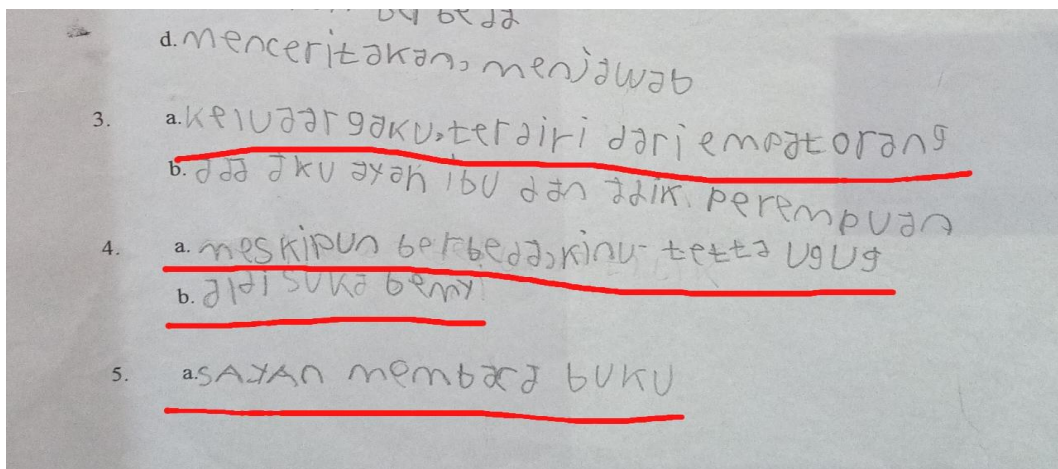 berbeda
d. menceritakan, menjawab
3. a. keluaargaku, terdiri dari empat orang
b. ada aku ayah ibu dan adik. perempuan
4. a. meskipun berbeda, kinu- tetta ugug
b. didi suka benny
5. a. SAYAn membaca buku